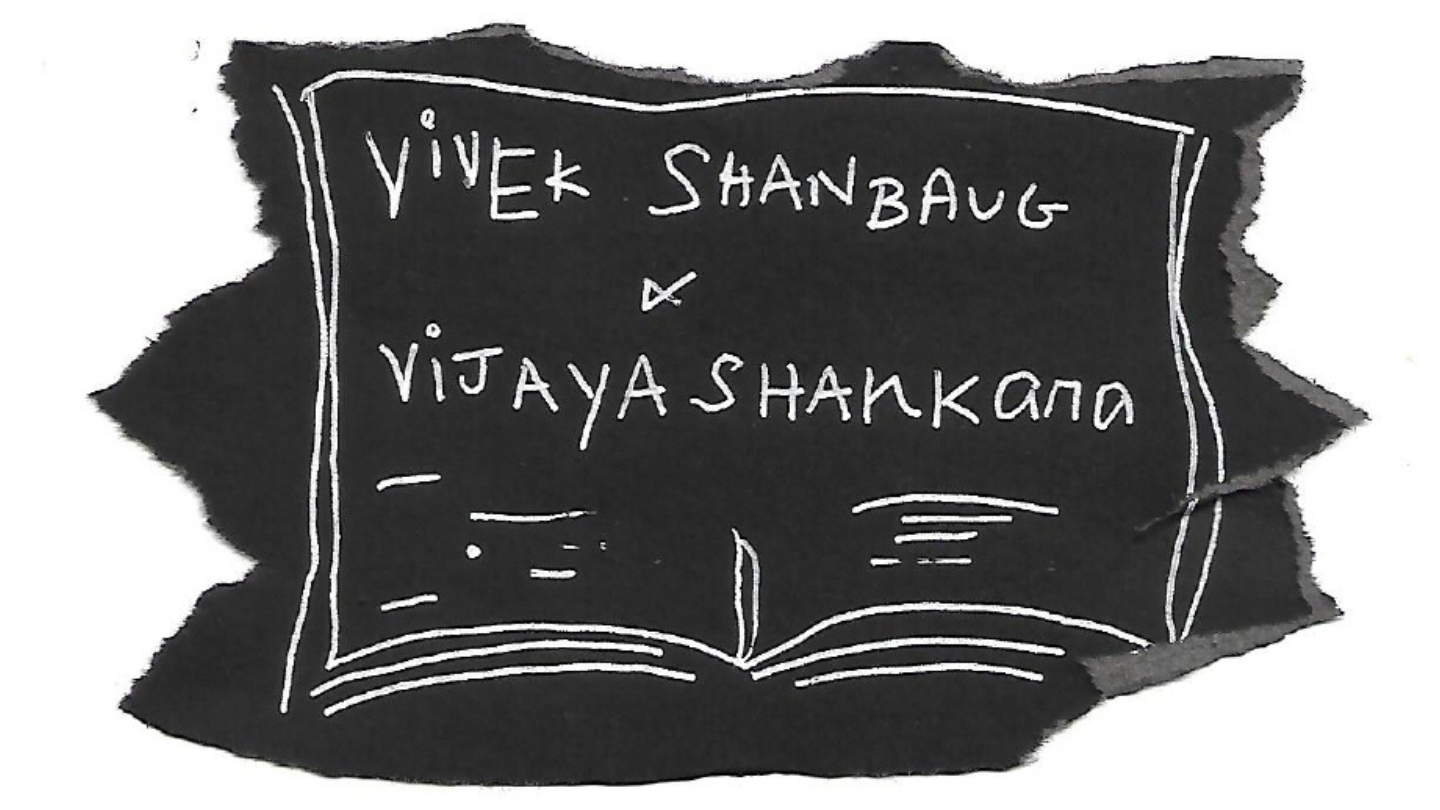 ViVEK SHANBAUG
&
ViJAYASHANKARA